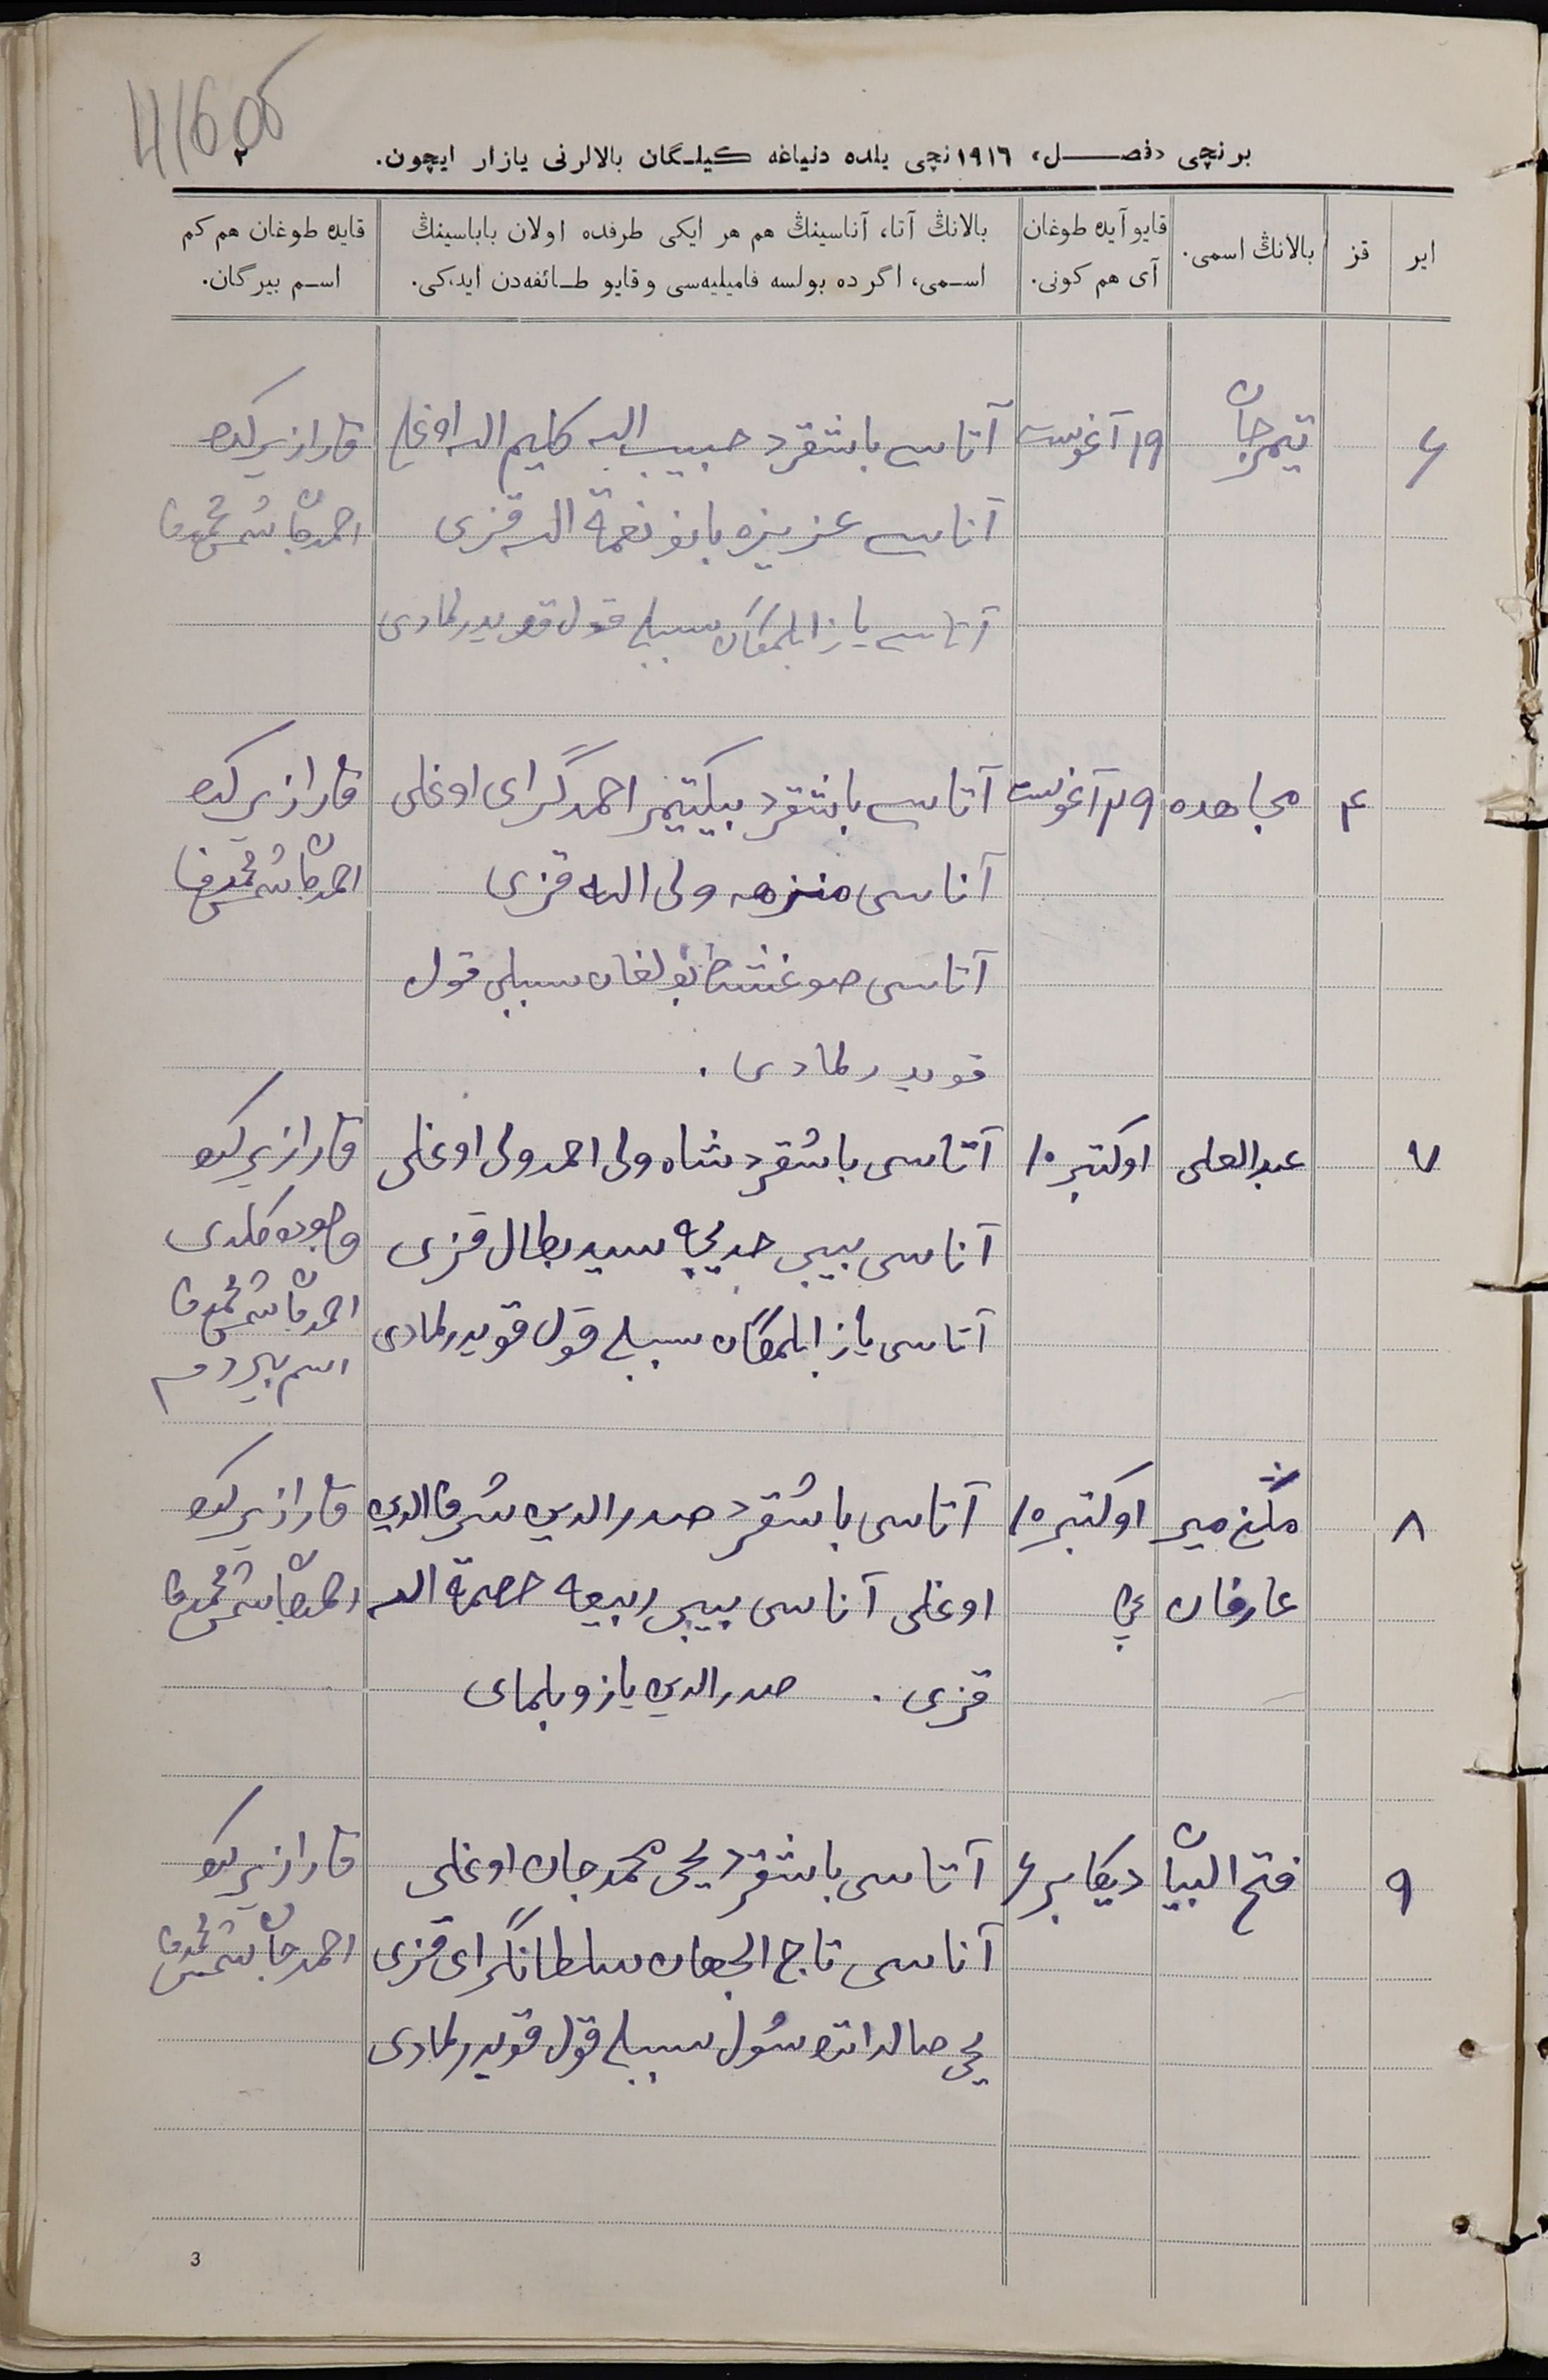 41606
برنچی «فصل» ١٩١٦نچی یلده دنیاغه كیلگان بالالرنی یازار ایچون.
٣
ایر
قز
بالانڭ اسمی.
قایو آیده طوغان
آی هم كونی.
بالانڭ آتا، آناسینڭ هم هر ایكی طرفده اولان باباسینڭ
اسمی، اگرده بولسه فامیلیه‌سی وقایو طائفه‌دن ایدكی.
قایده طوغان هم كم
اسم بیرگان.
۶
تیمرجان
١٩ آغوست
آتاسی باشقرد حبیب الله كلیم الله اوغلی
آناسی عزیزه بانو نعمة الله قزی
آتاسی یازا بلمگان سببلی قول قویدرلمادی
قارازیركده
۴
مجاهده
٢٩ آغوست
آتاسی باشقرد بیكتیمر احمدگرای اوغلی
آناسی منزمه ولی الله قزی
آتاسی صوغشطا بولغان سببلی قول
قویدرلمادی.
قارازیركده
٧
عبدالعلی
اوكتبر ١٠
آتاسی باشقرد شاه ولی احمدولی اوغلی
آناسی بیبی خدیجه سیدبطال قزی
آتاسی یازا بلمگان سببلی قول قویدرلمادی
قارازیركده
وجوده كلدی
اسم بیردم
٨
عارفان
اوكتبر ١٠
آتاسی باشقرد صدرالدین شرف الدین
اوغلی آناسی بیبی ربیعه عصمة الله
قزی. صدرالدین یازو بلمای
قارازیركده
٩
فتح البیان
دیكابر ۶
آتاسی باشقرد یحیی محمدجان اوغلی
آناسی تاج الجهان سلطانگرای قزی
یحیی صالداتده شول سببلی قول قویدرلمادی
قارازیركده
3